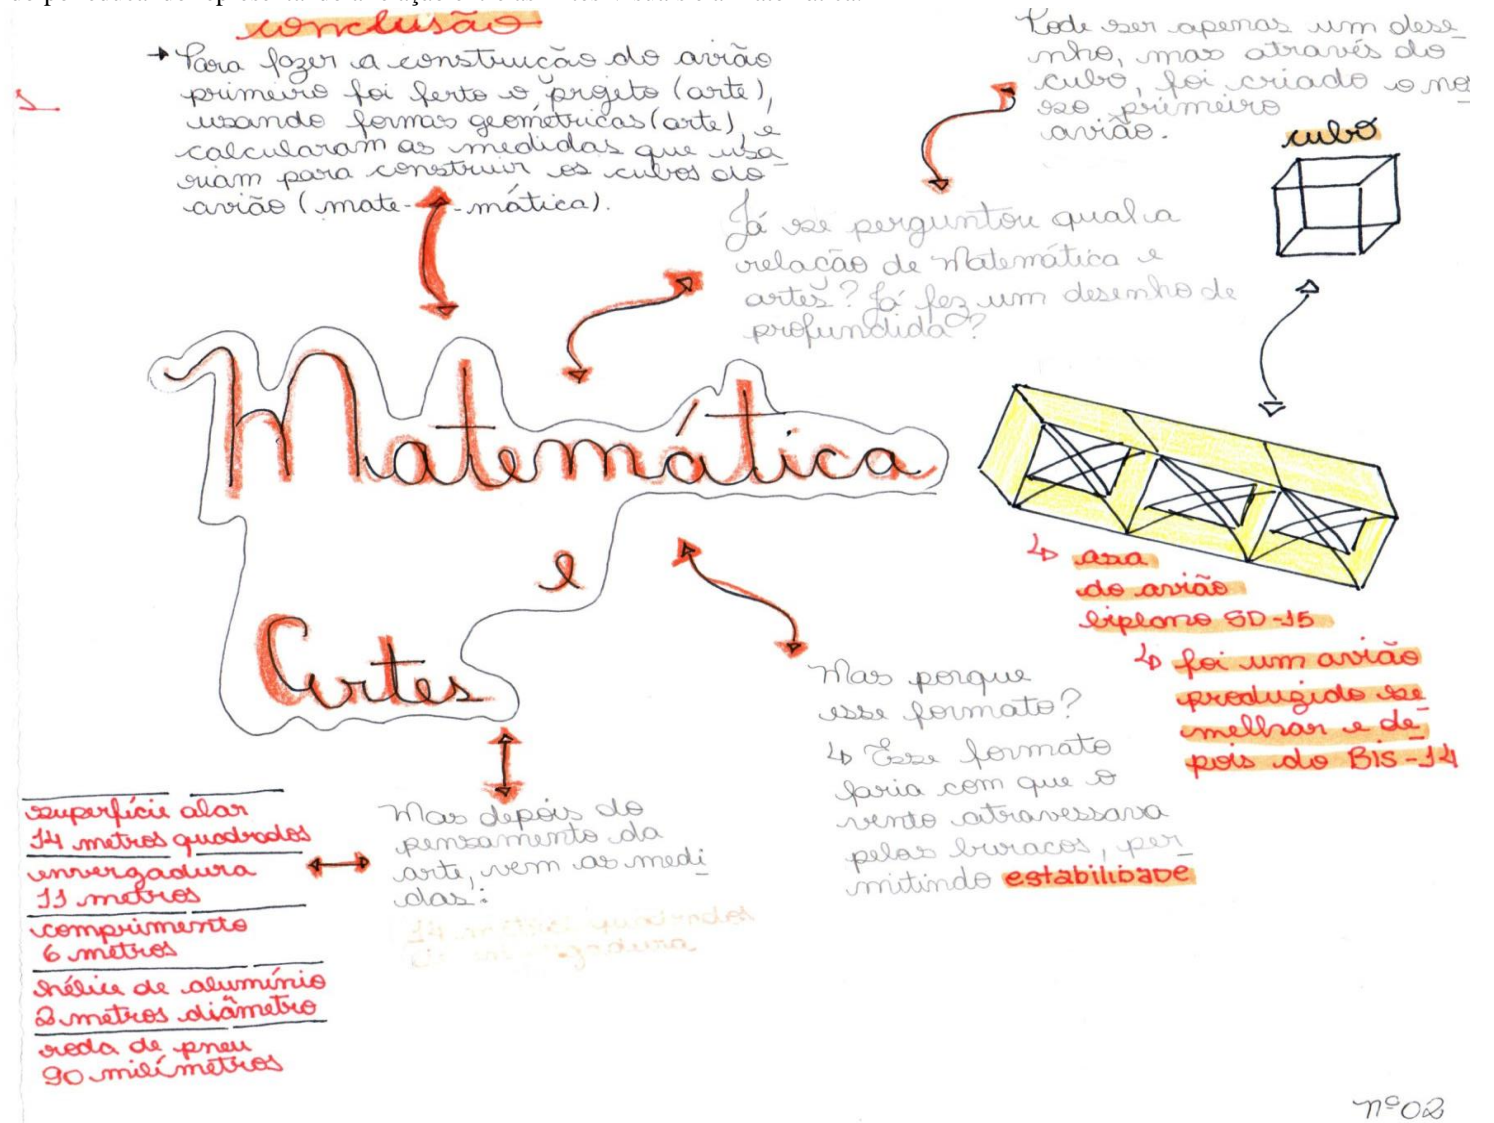 conclusão
→ Para fazer a construção do avião
primeiro foi ferto o projeto (arte),
usando formas geométricas (arte), e
calcularam as medidas que usa_
riam para construir os cubos do
avião (mate- -mática).
Pode ser apenas um dese_
nho, mas através do
cubo, foi criado o no_
sso primeiro
avião.
cubo
Já se perguntou qual a
relação de Matemática e
artes? Já fez um desenho de
profundida?
Matemática
e
Artes
↳ asa
do avião
biplano SD-15
↳ foi um avião
produzido se_
melhar e de_
pois do BIS-14
Mas porque
esse formato?
↳ Esse formato
faria com que o
vento atravessava
pelos buracos, per_
mitindo estabilidade
Mas depois do
pensamento da
arte, vem as medi_
das:
14 metros quadrados
superfície alar
14 metros quadrados
envergadura
11 metros
comprimento
6 metros
hélice de alumínio
2 metros diâmetro
roda de pneu
90 milímetros
nº02